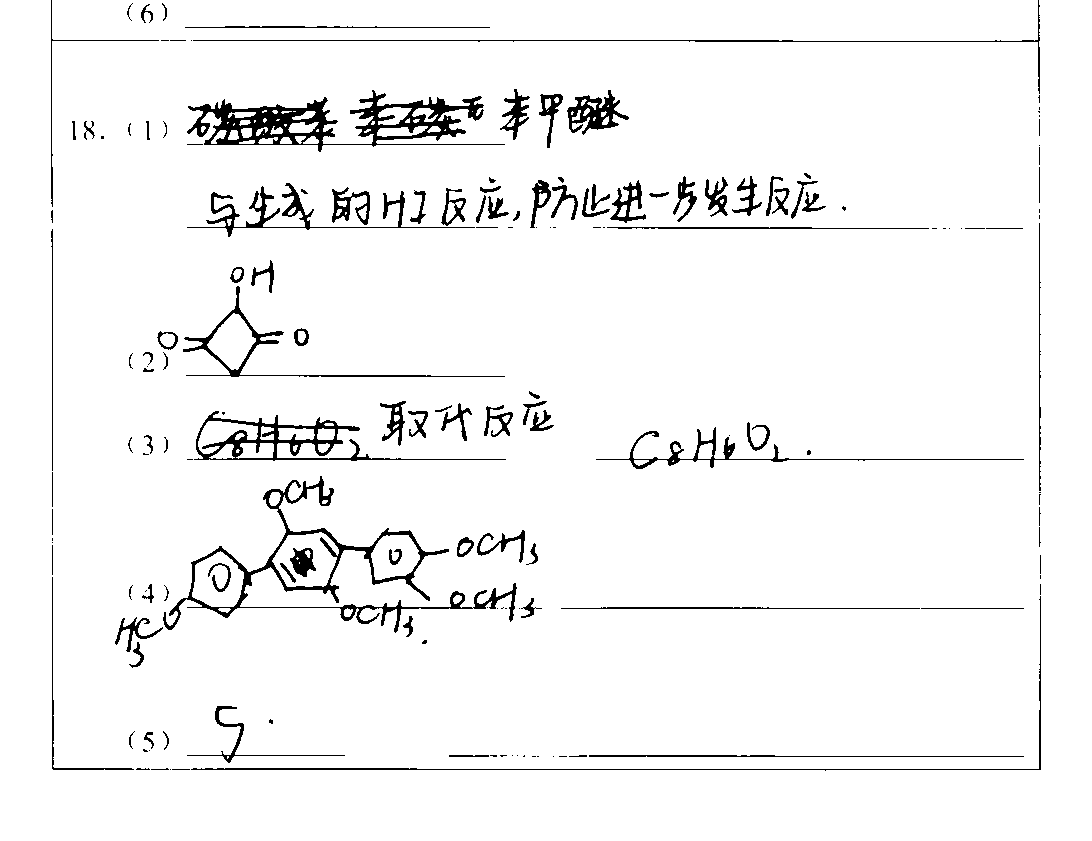 (6)
18. (1) 苯甲醚
与生成的HI反应,防止进一步发生反应.
OH
O O
(2)
(3) C8H6O2 取代反应 C8H6O2.
OCH3
OCH3
(4) OCH3
H3CO OCH3.
(5) 5.